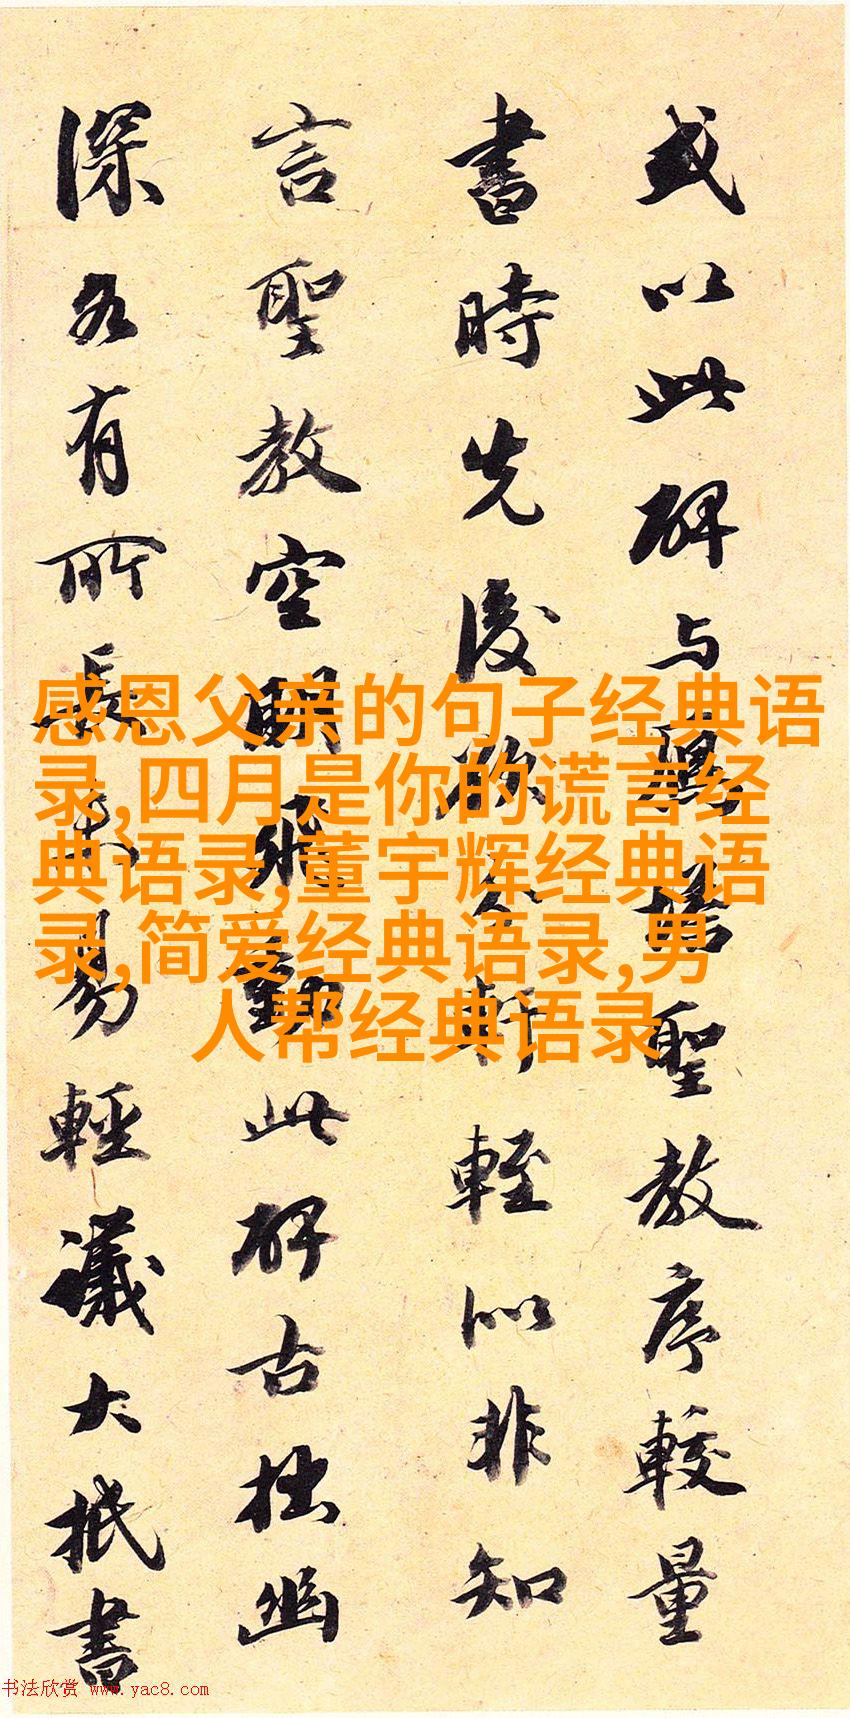 或以此碑与聖教序較量
書時先後欲分軒輊似非知
言聖教空明飛動此碑古拙幽
深各有所長未易輕議大抵書
感恩父亲的句子经典语
录,四月是你的谎言经
典语录,董宇辉经典语
录,简爱经典语录,男
人帮经典语录
书法欣赏 www.yac8.com